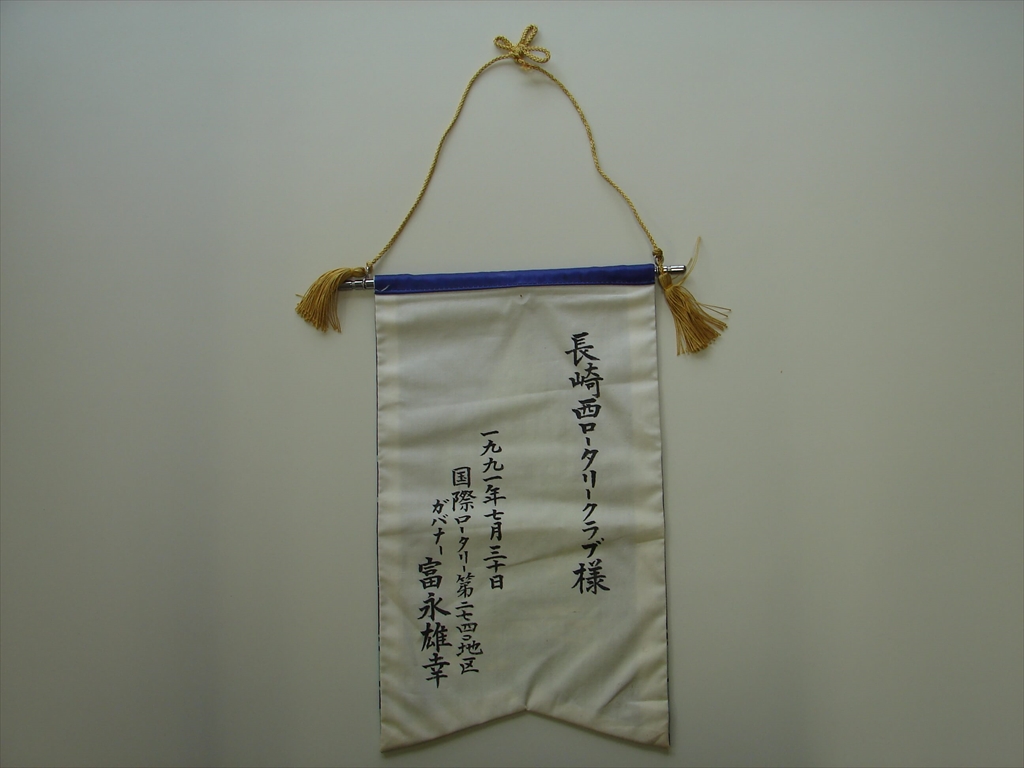 長崎西ロータリークラブ様
一九九一年七月三十日
国際ロータリー第二七四〇地区
ガバナー 富永雄幸